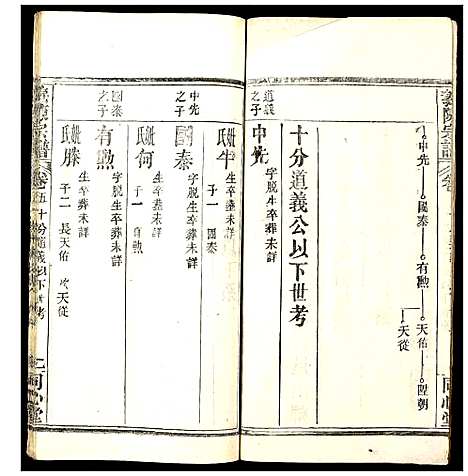 宗譜
卷
中先 國泰 有勲 天佑 陞朝
天從
十分道義公以下世考
道義之子
中先 字脫生卒葬未詳
妣牛氏 生卒葬未詳
子一 國泰
中先之子
國泰 字脫生卒葬未詳
妣何氏 生卒葬未詳
子一 有勲
國泰之子
有勲 字脫生卒葬未詳
妣滕氏 生卒葬未詳
子二 長天佑 次天從
宗譜
卷五十分道義公以下世考
同心堂